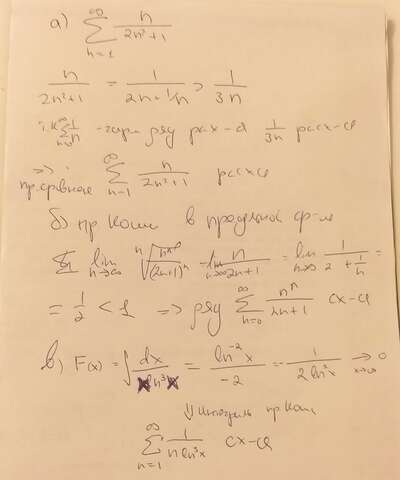 а) ∑_{n=1}^{∞} n/(2n²+1)
n/(2n²+1) = 1/(2n+1/n) > 1/(3n)
т.к ∑_{n=1}^{∞} 1/n - гарм ряд расх-я 1/(3n) расх-ся
=> пр.сравнение ∑_{n=1}^{∞} n/(2n²+1) расх-ся
б) пр Коши в предельной ф-ме
lim_{n→∞} ⁿ√(nⁿ/(2n+1)ⁿ) = lim_{n→∞} n/(2n+1) = lim_{n→∞} 1/(2+1/n) =
= 1/2 < 1 => ряд ∑_{n=0}^{∞} nⁿ/(2n+1) сх-ся
в) F(x) = ∫ dx/(ln³x) = ln⁻²x/(-2) = -1/(2ln²x) → 0 x→∞
⇓ Интеграль пр Коши
∑_{n=1}^{∞} 1/(n ln³x) сх-ся